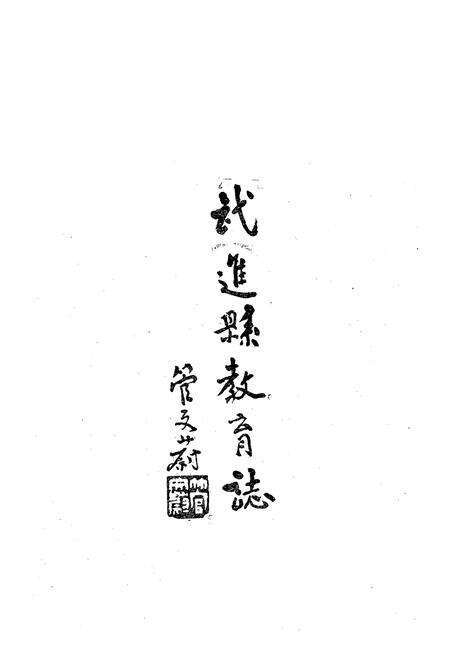 武進縣教育誌
管文蔚